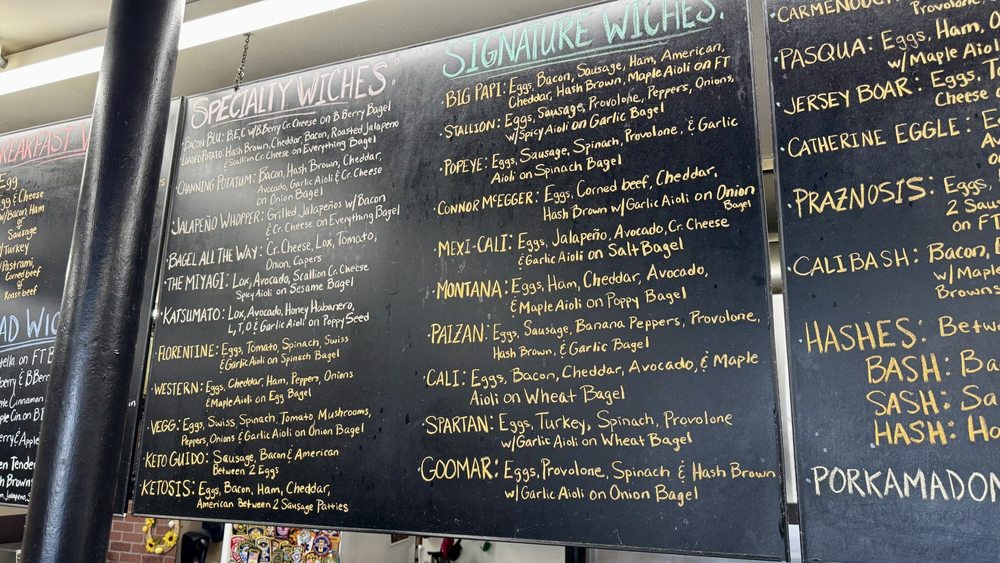 REAKFAST W
Egg
Egg & Cheese
w/Bacon Ham
or
Sausage
w/Turkey
Pastrami,
Corned beef
or
Roast beef
AD WIC
tella on FT B
berry & B Berr
Cinnamon
SPECIALTY WICHES:
BACON BLU: B,E,C w/B.Berry Cr. Cheese on B Berry Bagel
LOADED POTATO: Hash Brown, Cheddar, Bacon, Roasted Jalapeno
& Scallion Cr. Cheese on Everything Bagel
CHANNING POTATUM: Bacon, Hash Brown, Cheddar,
Avocado, Garlic Aioli & Cr. Cheese
on Onion Bagel
JALAPEÑO WHOPPER: Grilled Jalapeños w/Bacon
& Cr. Cheese on Everything Bagel
BAGEL ALL THE WAY: Cr. Cheese, Lox, Tomato,
Onion, Capers
THE MIYAGI: Lox, Avocado, Scallion Cr. Cheese
Spicy Aioli on Sesame Bagel
KATSUMATO: Lox, Avocado, Honey Habanero,
L, T, O & Garlic Aioli on Poppy Seed
FLORENTINE: Eggs, Tomato, Spinach, Swiss
& Garlic Aioli on Spinach Bagel
WESTERN: Eggs, Cheddar, Ham, Peppers, Onions
& Maple Aioli on Egg Bagel
VEGG: Eggs, Swiss, Spinach, Tomato, Mushrooms,
Peppers, Onions & Garlic Aioli on Onion Bagel
KETO GUIDO: Sausage, Bacon & American
Between 2 Eggs
KETOSIS: Eggs, Bacon, Ham, Cheddar,
American Between 2 Sausage Patties
SIGNATURE WICHES:
BIG PAPI: Eggs, Bacon, Sausage, Ham, American,
Cheddar, Hash Brown, Maple Aioli on FT
STALLION: Eggs, Sausage, Provolone, Peppers, Onions,
w/Spicy Aioli on Garlic Bagel
POPEYE: Eggs, Sausage, Spinach, Provolone, & Garlic
Aioli on Spinach Bagel
CONNOR McEGGER: Eggs, Corned beef, Cheddar,
Hash Brown w/Garlic Aioli on Onion
Bagel
MEXI-CALI: Eggs, Jalapeño, Avocado, Cr. Cheese
& Garlic Aioli on Salt Bagel
MONTANA: Eggs, Ham, Cheddar, Avocado,
& Maple Aioli on Poppy Bagel
PAIZAN: Eggs, Sausage, Banana Peppers, Provolone,
Hash Brown, & Garlic Bagel
CALI: Eggs, Bacon, Cheddar, Avocado, & Maple
Aioli on Wheat Bagel
SPARTAN: Eggs, Turkey, Spinach, Provolone
w/Garlic Aioli on Wheat Bagel
GOOMAR: Eggs, Provolone, Spinach & Hash Brown
w/ Garlic Aioli on Onion Bagel
Provolone,
PASQUA: Eggs, Ham,
w/Maple Aiol
JERSEY BOAR: Eggs, T
Cheese
CATHERINE EGGLE: E
PRAZNOSIS: Eggs,
2 Saus
on FT
CALIBASH: Bacon,
w/Maple
Browns
HASHES: Betw
BASH: Ba
SASH: Sa
HASH: Ha
PORKAMADON